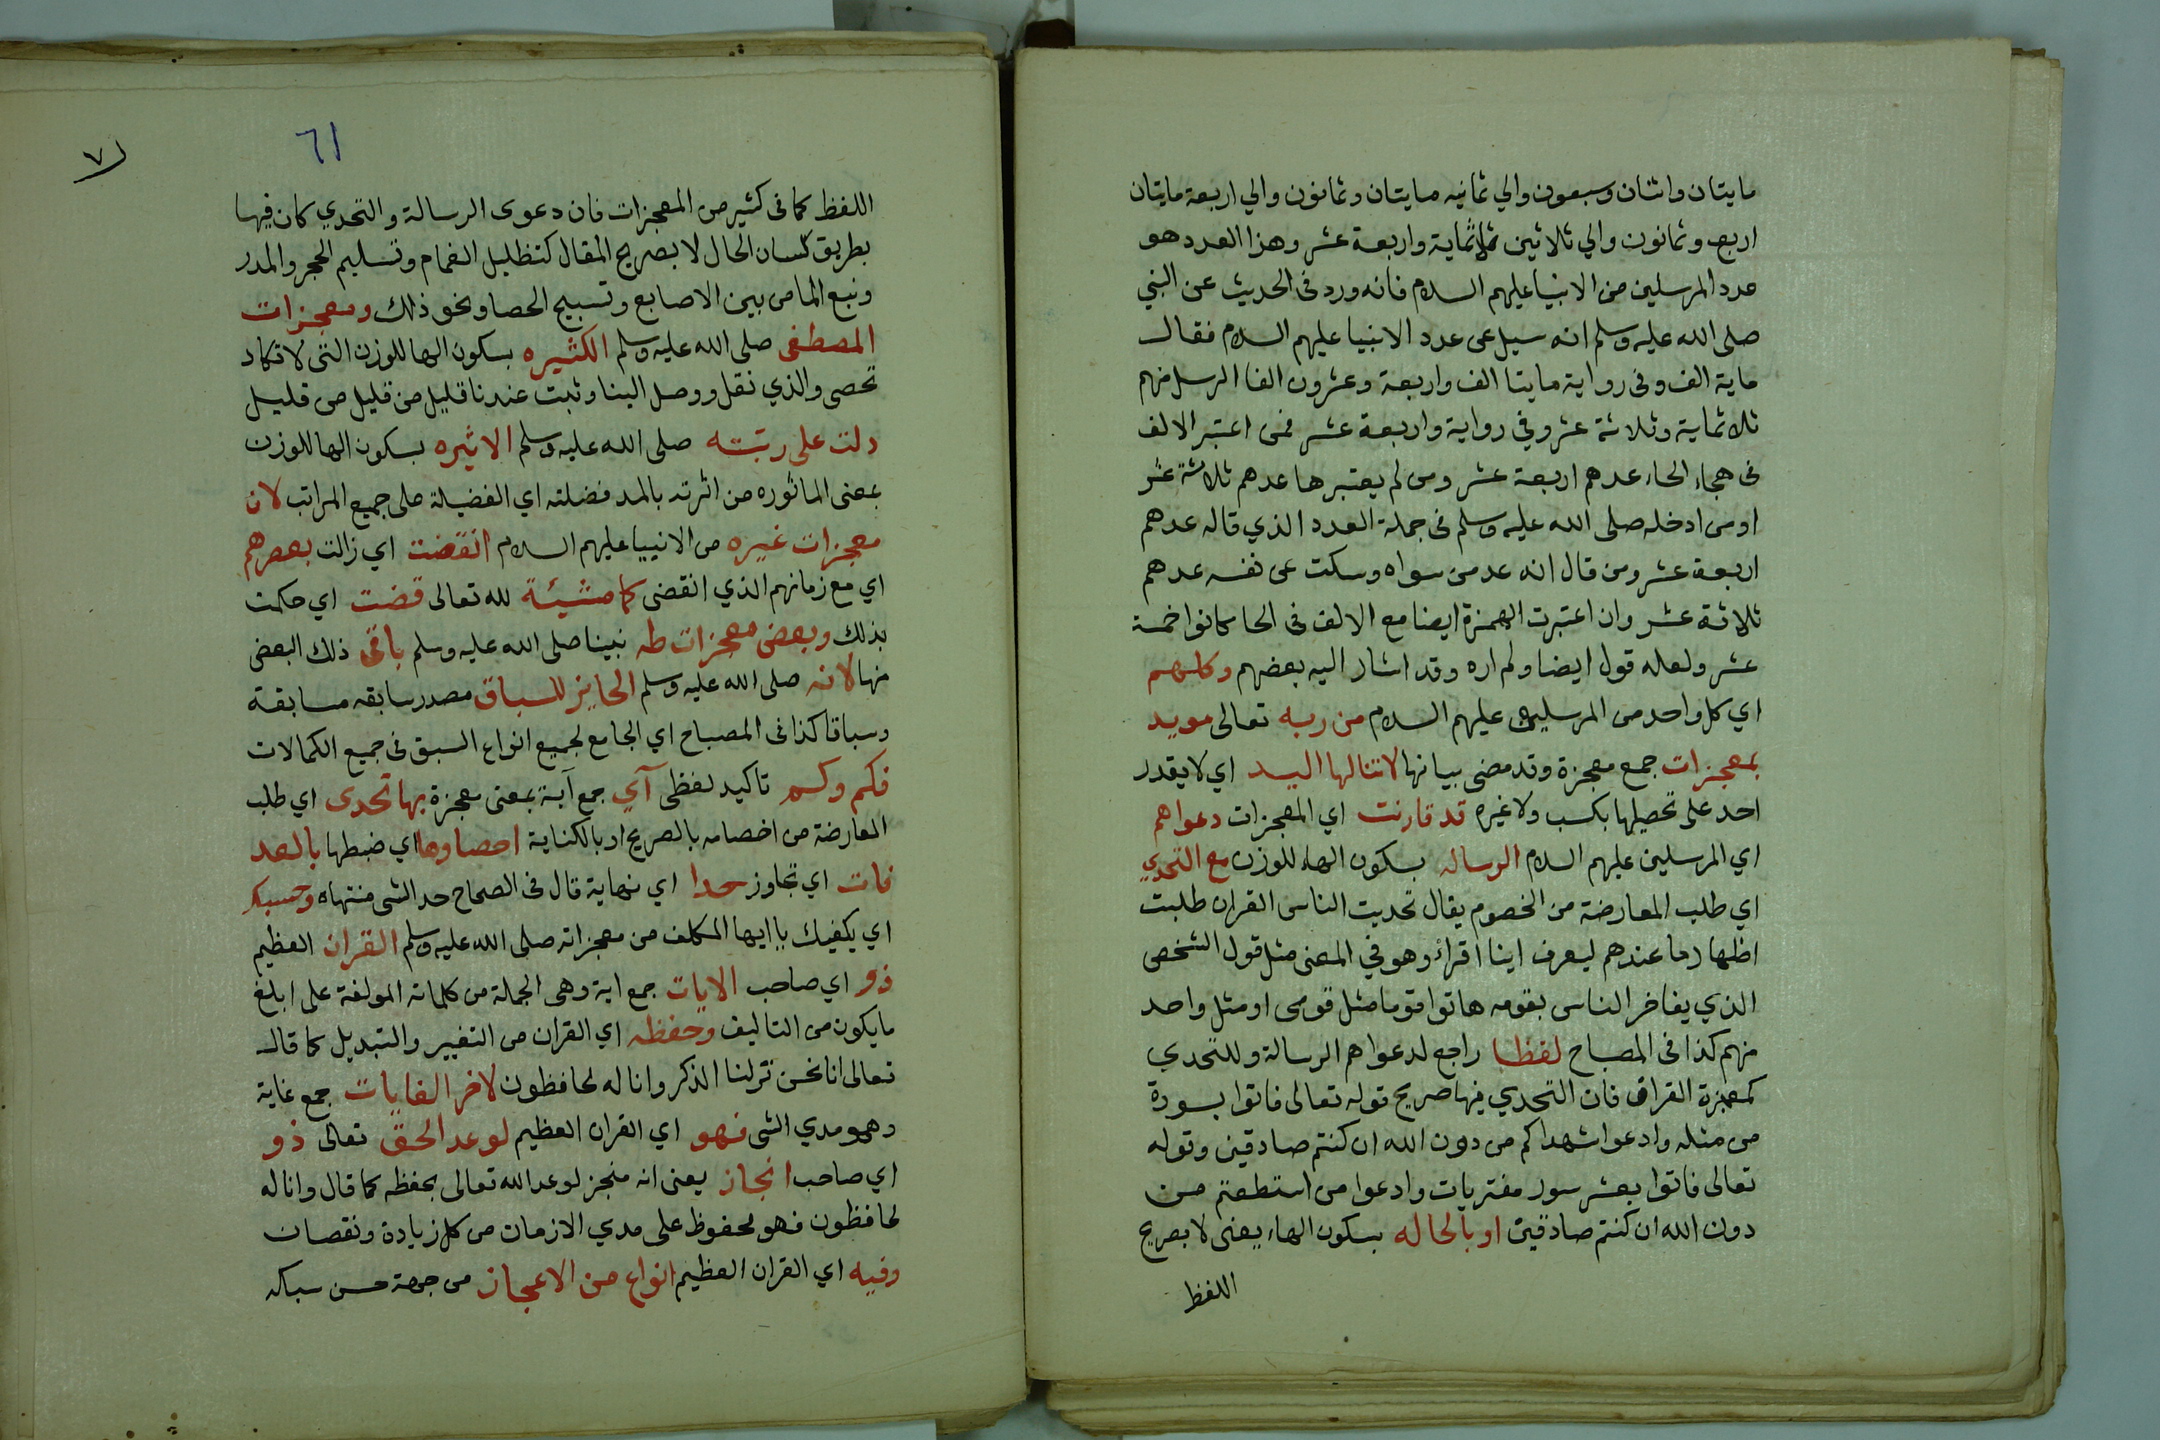 مايتان واثنان وسبعون والي ثمانيه مايتان وثمانون والي اربعة مايتان
اربع وثمانون والي ثلاثين ثلاثماية واربعة عشر وهذا العدد هو
عدد المرسلين من الانبيا عليهم السلام فانه ورد فى الحديث عن النبي
صلى الله عليه وسلم انه سيل عن عدد الانبيا عليهم السلام فقال
ماية الف وفى رواية مايتا الف واربعة وعشرون الفا الرسل منهم
ثلاثماية وثلاثة عشر وفي رواية واربعة عشر فمن اعتبر الالف
فى هجاء الحاء عدهم اربعة عشر ومن لم يعتبرها عدهم ثلاثة عشر
او من ادخله صلى الله عليه وسلم فى جملة العدد الذي قاله عدهم
اربعة عشر ومن قال انه عد من سواه وسكت عن نفسه عدهم
ثلاثة عشر وان اعتبرت الهمزة ايضا مع الالف فى الحا كانوا خمسة
عشر ولعله قول ايضا ولم اره وقد اشار اليه بعضهم وكلهم
اي كل واحد من المرسلين عليهم السلام من ربه تعالى مويد
بمعجزات جمع معجزة وقد مضى بيانها لا تنالها اليد اي لا يقدر
احد على تحصيلها بكسب ولا غيره قد قارنت اي المعجزات دعواهم
اي المرسلين عليهم السلام الرساله بسكون الهاء للوزن مع التحدي
اي طلب المعارضة من الخصوم يقال تحديت الناس القران طلبت
اظهار ما عندهم ليعرف اينا اقراء وهو في المعنى مثل قول الشخص
الذي يفاخر الناس بقومه هاتوا قوما مثل قومى او مثل واحد
منهم كذا فى المصباح لفظا راجع لدعواهم الرسالة وللتحدي
كمعجزة القران فان التحدي فيها صريح قوله تعالى فاتوا بسورة
من مثله وادعوا شهداكم من دون الله ان كنتم صادقين وقوله
تعالى فاتوا بعشر سور مفتريات وادعوا من استطعتم من
دون الله ان كنتم صادقين او بالحاله بسكون الهاء يعنى لا بصريح
اللفظ
٦١
٧١
اللفظ كما فى كثير من المعجزات فان دعوى الرسالة والتحدي كان فيها
بطريق لسان الحال لا بصريح المقال كتظليل الغمام وتسليم الحجر والمدر
ونبع الما من بين الاصابع وتسبيح الحصا ونحو ذلك ومعجزات
المصطفى صلى الله عليه وسلم الكثيره بسكون الها للوزن التى لا تكاد
تحصى والذي نقل ووصل الينا وثبت عندنا قليل من قليل من قليل
دلت على رتبته صلى الله عليه وسلم الاثيره بسكون الها للوزن
بمعنى الماثوره من اثرته بالمد فضلته اي الفضيلة على جميع المراتب لان
معجزات غيره من الانبيا عليهم السلام انقضت اي زالت بعصرهم
اي مع زمانهم الذي انقضى كما مشيئة لله تعالى قضت اي حكمت
بذلك وبعض معجزات طه نبينا صلى الله عليه وسلم باقى ذلك البعض
منها لانه صلى الله عليه وسلم الحايز للسباق مصدر سابقه مسابقة
وسباقا كذا فى المصباح اي الجامع لجميع انواع السبق فى جميع الكمالات
فكم وكم تاكيد لفظى آي جمع آية بمعنى معجزة بها تحدى اي طلب
المعارضة من اخصامه بالصريح او بالكناية احصاوها اي ضبطها بالعد
فات اي تجاوز حدا اي نهاية قال فى الصحاح حد الشى منتهاه وحسبك
اي يكفيك يا ايها المكلف من معجزاته صلى الله عليه وسلم القران العظيم
ذو اي صاحب الايات جمع اية وهى الجملة من كلماته المولفة على ابلغ
ما يكون من التاليف وحفظه اي القران من التغيير والتبديل كما قال
تعالى انا نحن نزلنا الذكر وانا له لحافظون لاخر الغايات جمع غاية
وهو مدي الشى فهو اي القران العظيم لوعد الحق تعالى ذو
اي صاحب انجاز يعنى انه منجز لوعد الله تعالى بحفظه كما قال وانا له
لحافظون فهو محفوظ على مدي الازمان من كل زيادة ونقصان
وفيه اي القران العظيم انواع من الاعجاز من جهة حسن سبكه